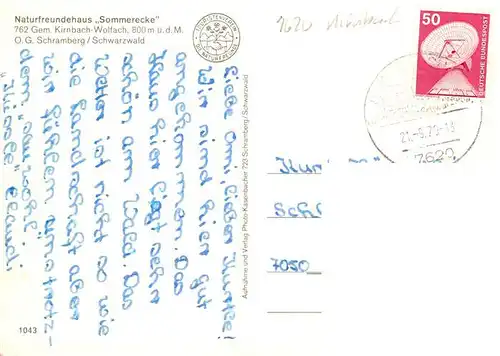 Naturfreundehaus „Sommerecke"
762 Gem. Kirnbach-Wolfach, 800 m ü.d.M.
O.G. Schramberg / Schwarzwald
7620
50
DEUTSCHE BUNDESPOST
7620
Liebe Omi, lieber
Wir sind hier gut
angekommen. Das
Haus hier liegt sehr
schön am Wald. Das
Wetter ist nicht so wie
die Landschaft aber
wir fühlen uns trotz-
dem sauwohl.
Aufnahme und Verlag Photo-Kasenbacher 723 Schramberg/Schwarzwald
Kur
Sch
7050
1043